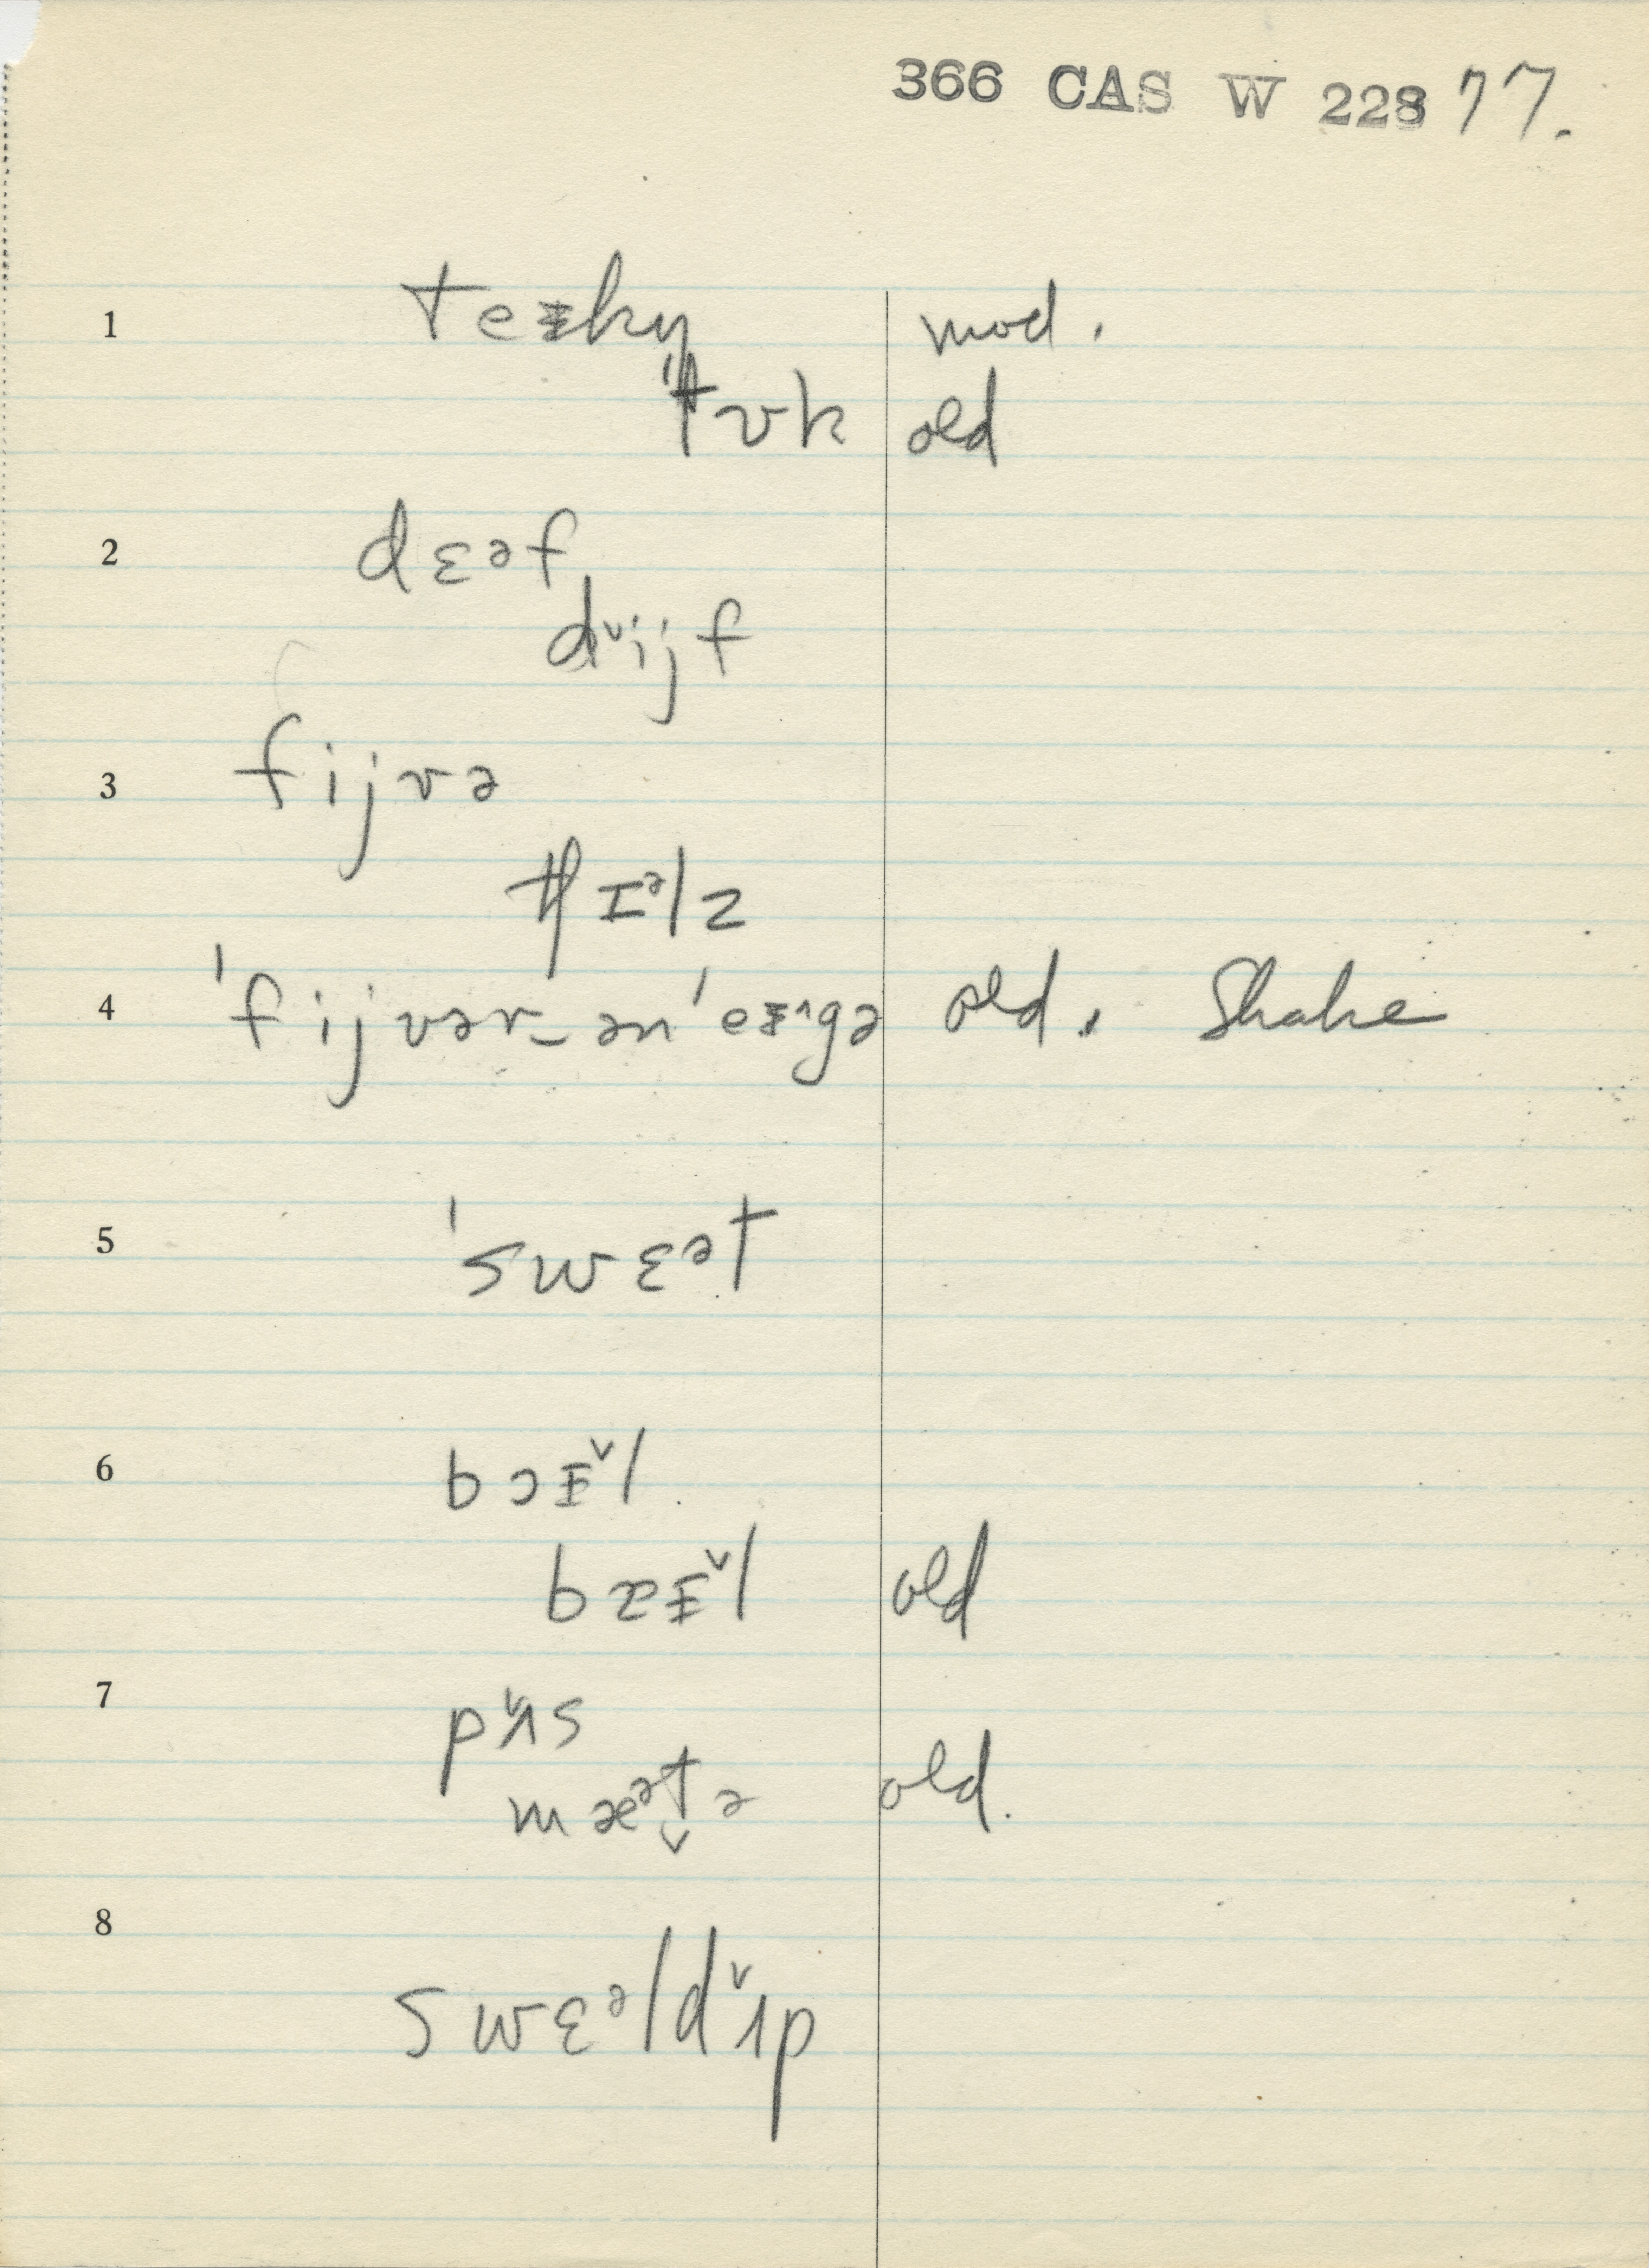 366 CAS W 228 77.
1 teᵻku mod.
ˈtʊk old
2 dɛəf
dˇijf
3 fijvə
tʃɪᵊlz
4 ˈfijvər‿ənˈeᵻ^gə old. Shake
5 ˈswɛət
6 bɔᵻˇl
bɑᵻˇl old
7 pˇʌs
mæᵊt̬ə old.
8 swɛᵊldˇɪp